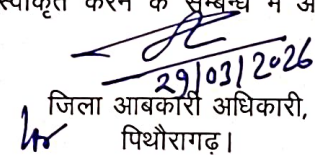 स्वीकृत करने के सम्बन्ध में अ
29/03/2026
जिला आबकारी अधिकारी,
पिथौरागढ़।